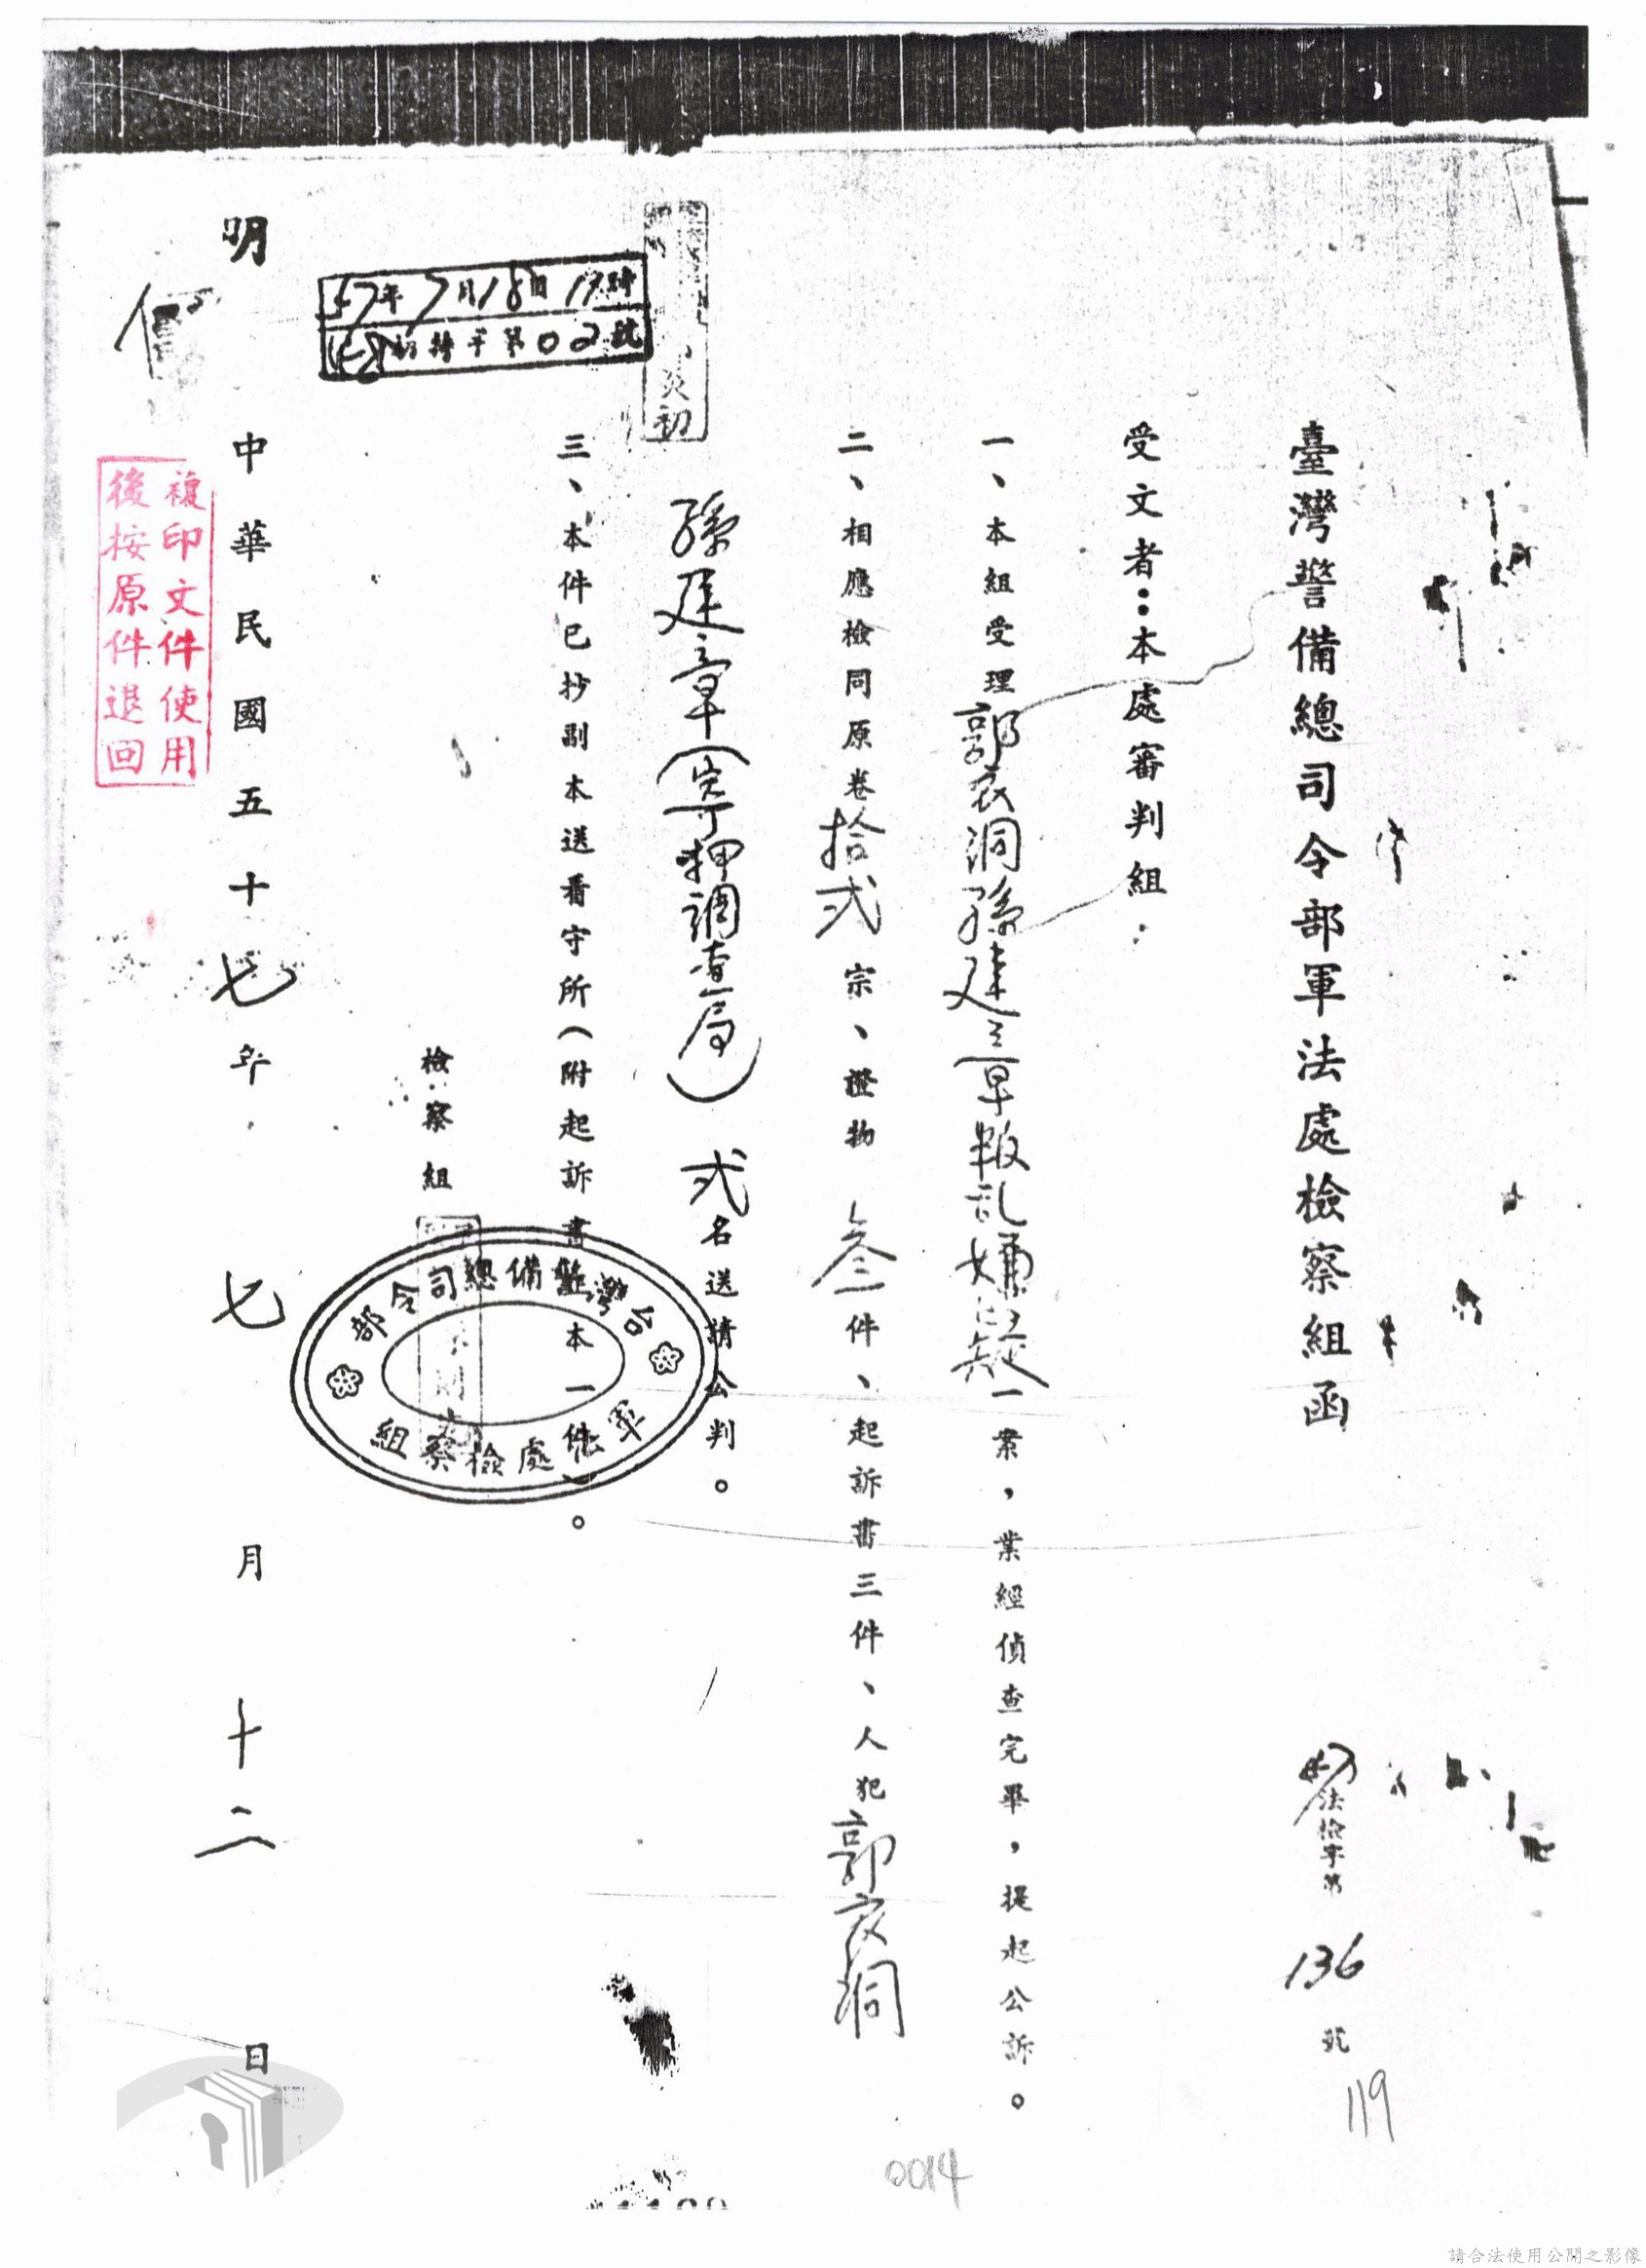 臺灣警備總司令部軍法處檢察組函
法檢字第 136 號
119
受文者：本處審判組
一、本組受理郭衣洞孫建章叛乱嫌疑一案，業經偵查完畢，提起公訴。
二、相應檢同原卷拾弍宗、證物叁件、起訴書三件、人犯郭衣洞
孫建章（寄押調查局）弍名送請公判。
三、本件已抄副本送看守所（附起訴書 本一件）。
檢察組
台灣警備總司令部
軍法處檢察組
57年7月18日 時
字第02號
炎初
明
中華民國五十七年七月十二日
複印文件使用
後按原件退回
0014
請合法使用公開之影像